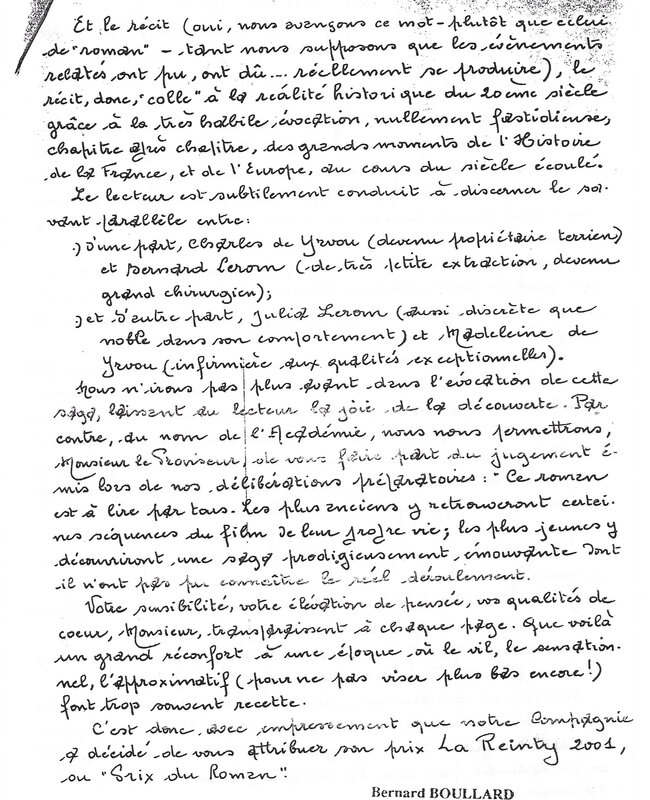 Et le récit (oui, nous avançons ce mot-plutôt que celui
de "roman" - tant nous supposons que les évènements
relatés ont pu, ont dû... réellement se produire), le
récit, donc, "colle" à la réalité historique du 20ème siècle
grâce à la très habile évocation, nullement fastidieuse,
chapitre après chapitre, des grands moments de l'Histoire
de la France, et de l'Europe, au cours du siècle écoulé.
Le lecteur est subtilement conduit à discerner le sa-
vant parallèle entre:
.) d'une part, Charles de Yrvou (devenu propriétaire terrien)
et Bernard Lerom (de très petite extraction, devenu
grand chirurgien);
.) et d'autre part, Julia Lerom (aussi discrète que
noble dans son comportement) et Madeleine de
Yrvou (infirmière aux qualités exceptionnelles).
Nous n'irons pas plus avant dans l'évocation de cette
saga, laissant au lecteur la joie de la découverte. Par
contre, au nom de l'Académie, nous nous permettrons,
Monsieur le Proviseur, de vous faire part du jugement é-
mis lors de nos délibérations préparatoires: "Ce roman
est à lire par tous. Les plus anciens y retrouveront certai-
nes séquences du film de leur propre vie; les plus jeunes y
découvriront une saga prodigieusement émouvante dont
il n'ont pas pu connaître le réel déroulement.
Votre sensibilité, votre élévation de pensée, vos qualités de
coeur, Monsieur, transparaissent à chaque page. Que voilà
un grand réconfort à une époque où le vil, le sensation-
nel, l'approximatif (pour ne pas viser plus bas encore!)
font trop souvent recette.
C'est donc avec empressement que notre Compagnie
a décidé de vous attribuer son prix La Reinty 2001,
ou "Prix du Roman".
Bernard BOULLARD